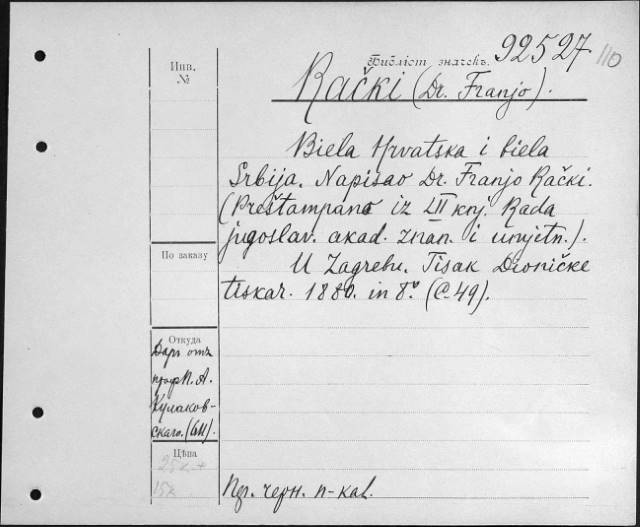 Инв.
№
Библіот. значекъ. 92527
110
Rački (Dr. Franjo).
Biela Hrvatska i biela
Srbija. Napisao Dr. Franjo Rački.
(Preštampano iz LII knj. Rada
jugoslav. akad. znan. i umjetn.).
U Zagrebu. Tisak Dioničke
tiskar. 1880. in 8º. (C. 49).
По заказу
Откуда
Даръ отъ
проф. П. А.
Кулаков-
скаго.
Цѣна
25к.
15к
черн. п-кал.